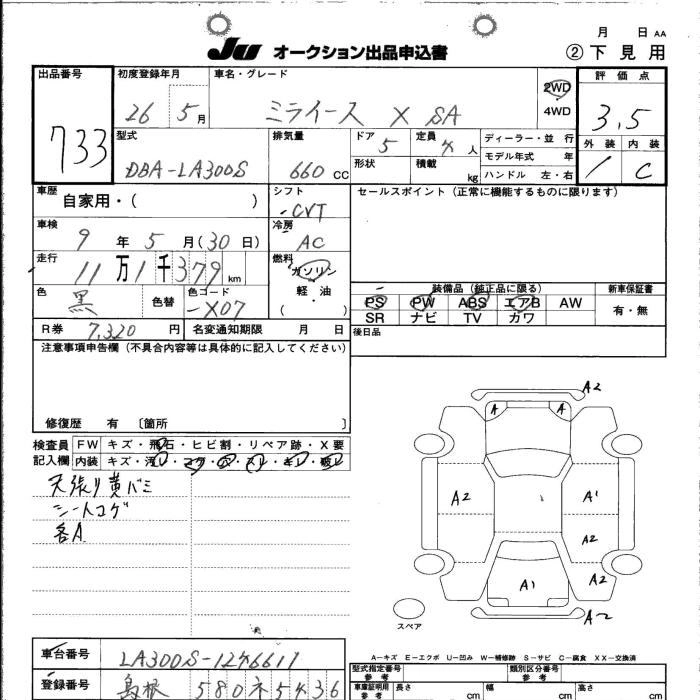 月 日 AA
JU オークション出品申込書 ②下見用
出品番号 733
初度登録年月 26 5月
車名・グレード ミライース X SA
2WD 4WD
評価点 3.5
外装 1 内装 C
型式 DBA-LA300S
排気量 660 CC
ドア 5 定員 4人
形状 積載 kg
ディーラー・並行
モデル年式 年
ハンドル 左・右
車歴 自家用・( )
シフト CVT
セールスポイント(正常に機能するものに限ります)
車検 9年5月(30日)
冷房 AC
走行 11万1千379km
燃料 ガソリン 軽・油 ( )
色 黒 色替 色コード X07
装備品(純正品に限る) 新車保証書
PS PW ABS エアB AW 有・無
SR ナビ TV カワ
R券 7,320円 名変通知期限 月 日
後日品
注意事項申告欄(不具合内容等は具体的に記入してください)
修復歴 有 〔箇所 〕
検査員記入欄
FW キズ・飛石・ヒビ割・リペア跡・X要
内装 キズ・汚レ・コゲ・穴・スレ・キレ・破レ
天張り黄バミ
シートコゲ
各A
A2
A A
A2 A1
A2
A1 A2
A2
スペア
A-キズ E-エクボ U-凹み W-補修跡 S-サビ C-腐食 XX-交換済
車台番号 LA300S-1246611
型式指定番号 参考 類別区分番号 参考
登録番号 島根 580 ネ 5436
車庫証明用 参考 長さ cm 幅 cm 高さ cm